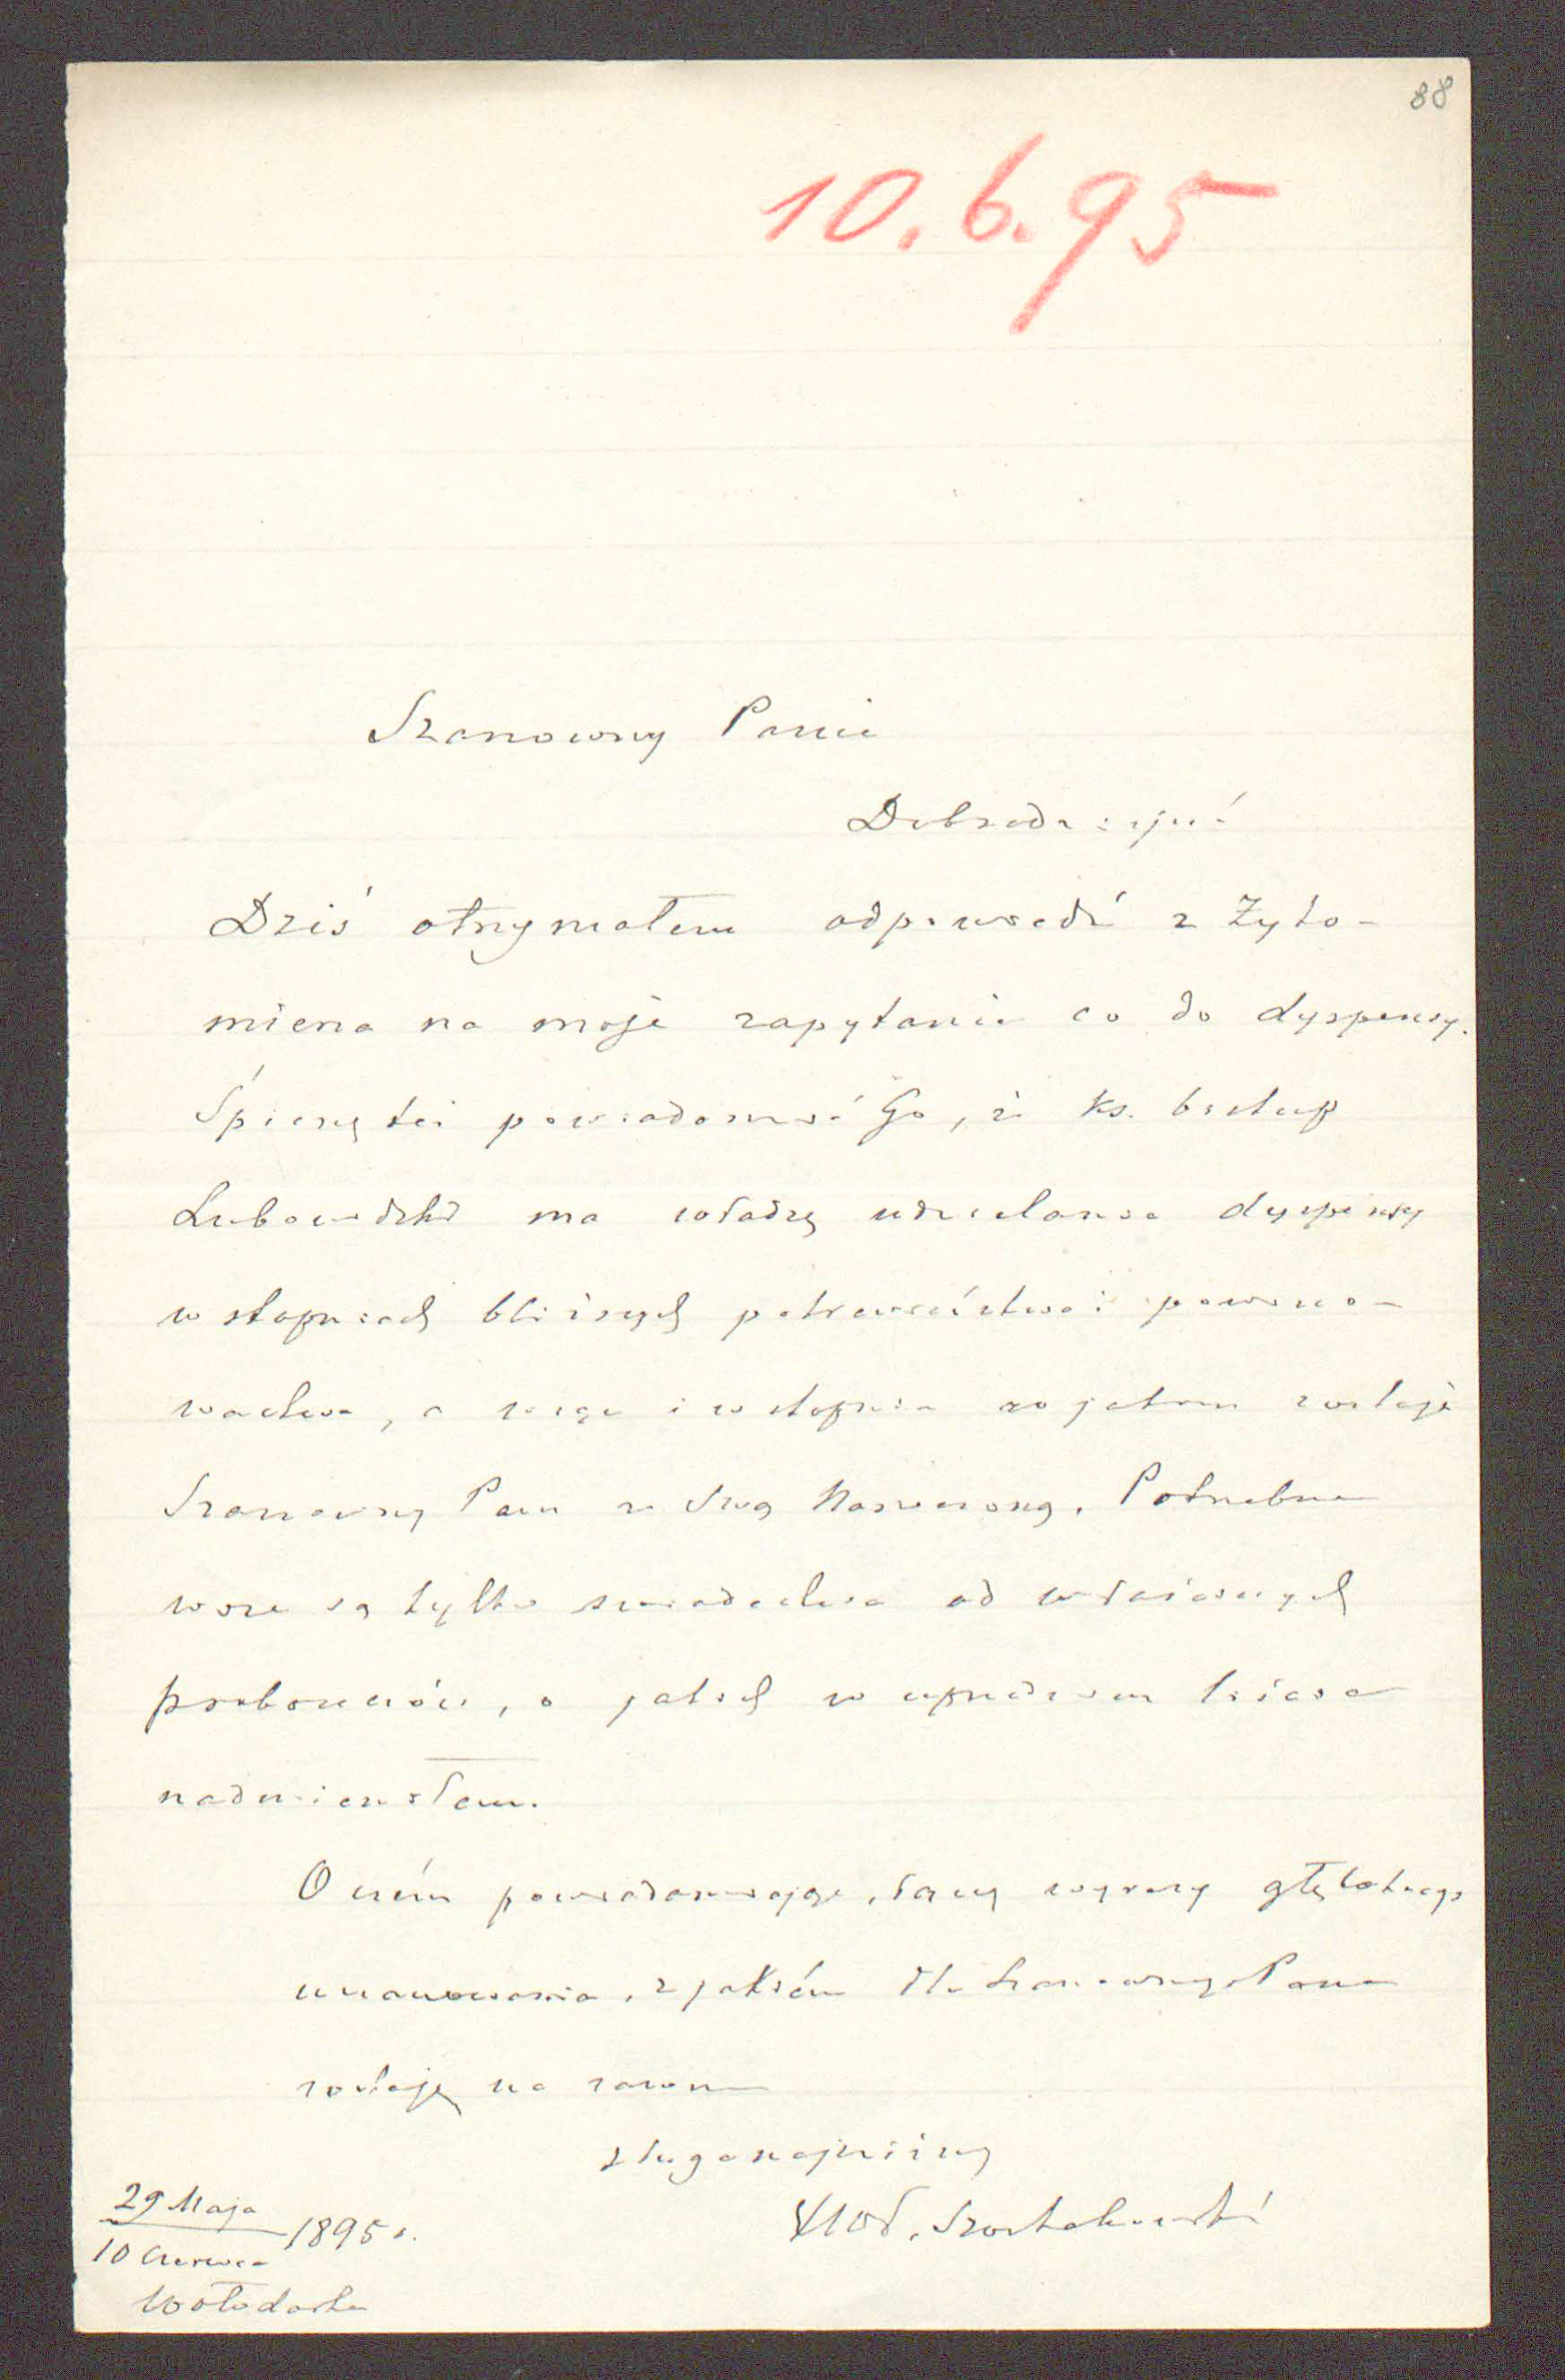 88
10.6.95
Szanowny Panie
Dobrodzieju!
Dziś otrzymałem odpowiedź z Żyto-
mierza na moje zapytanie co do dyspensy.
Śpieszę też powiadomić Go, iż ks. biskup
Lubowidzki ma władzę udzielania dyspensy
w stopniach bliższych pokrewieństwa i powino-
wactwa, a więc i w stopniu w jakim zostaje
Szanowny Pan ze Swą Narzeczoną. Potrzebne
wsze są tylko świadectwa od właściwych
proboszczów, o jakich w uprzednim liście
nadmieniłem.
O czém powiadamiając, łączę wyrazy głębokiego
uszanowania, z jakiém dla Szanownego Pana
zostaję na zawsze
sługa najniższy
Wład. Szostakowski
29 Maja
10 Czerwca 1895 r.
Wołodarka